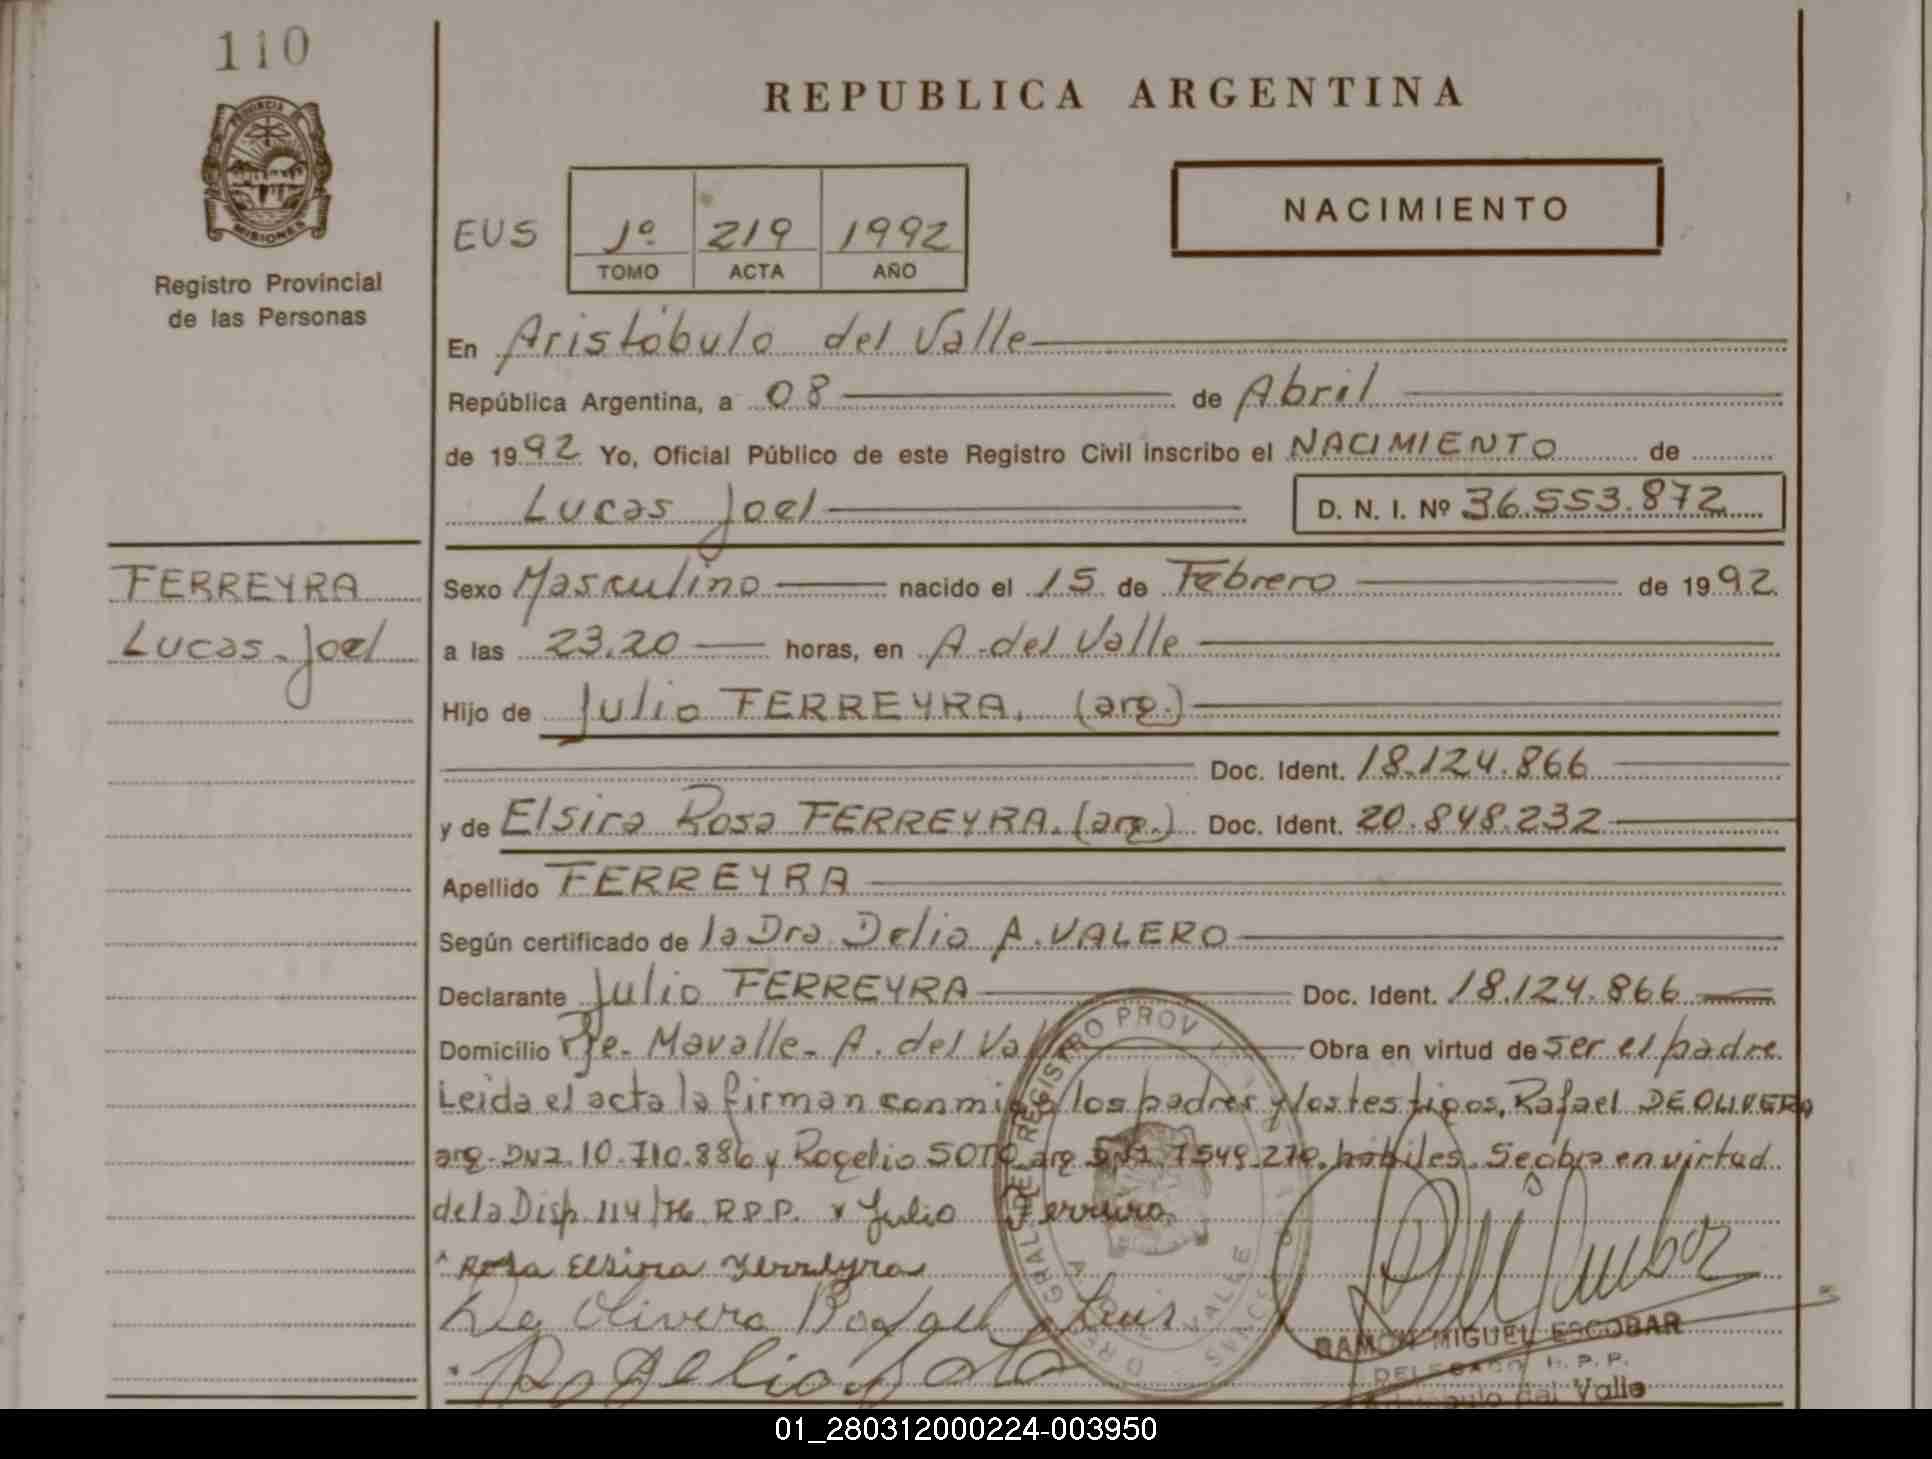 110
PROVINCIA DE
MISIONES
Registro Provincial
de las Personas
REPUBLICA ARGENTINA
EUS
1º 219 1992
TOMO ACTA AÑO
NACIMIENTO
En Aristóbulo del Valle
República Argentina, a 08 de Abril
de 1992 Yo, Oficial Público de este Registro Civil inscribo el NACIMIENTO de
Lucas Joel D. N. I. Nº 36.553.872
FERREYRA
Lucas Joel
Sexo Masculino nacido el 15 de Febrero de 1992
a las 23.20 horas, en A. del Valle
Hijo de Julio FERREYRA. (arg.)
Doc. Ident. 18.124.866
y de Elsira Rosa FERREYRA. (arg.) Doc. Ident. 20.848.232
Apellido FERREYRA
Según certificado de la Dra Delia A. VALERO
Declarante Julio FERREYRA Doc. Ident. 18.124.866
Domicilio Pje. Mavalle. A. del Valle Obra en virtud de ser el padre.
Leida el acta la firman conmigo los padres y los testigos, Rafael DE OLIVERA
arg. DNI 10.710.886 y Rogelio SOTO arg DNI 7549.270. hábiles. Se obra en virtud
de la Disp. 114/76 R.P.P. x Julio Ferreira
Rosa Elsira Ferreyra
De Olivera Rafael Luis
Rogelio Soto
RAMON MIGUEL ESCOBAR
DELEGADO R. P. P.
Aristobulo del Valle
01_280312000224-003950